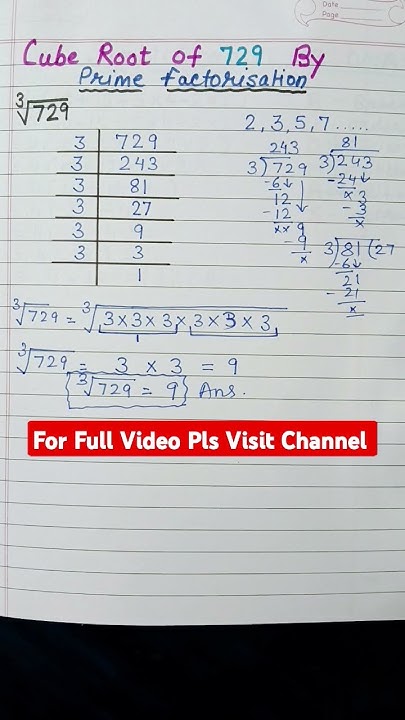 Date
Page
Cube Root of 729 By
Prime factorisation
∛729
3 | 729
3 | 243
3 | 81
3 | 27
3 | 9
3 | 3
| 1
2, 3, 5, 7 .....
243
3)729
-6↓
12
-12
xx9
-9
x
81
3)243
-24↓
x3
-3
x
3)81(27
-6↓
21
-21
x
∛729 = ∛3×3×3×3×3×3
∛729 = 3 × 3 = 9
∛729 = 9 Ans.
For Full Video Pls Visit Channel